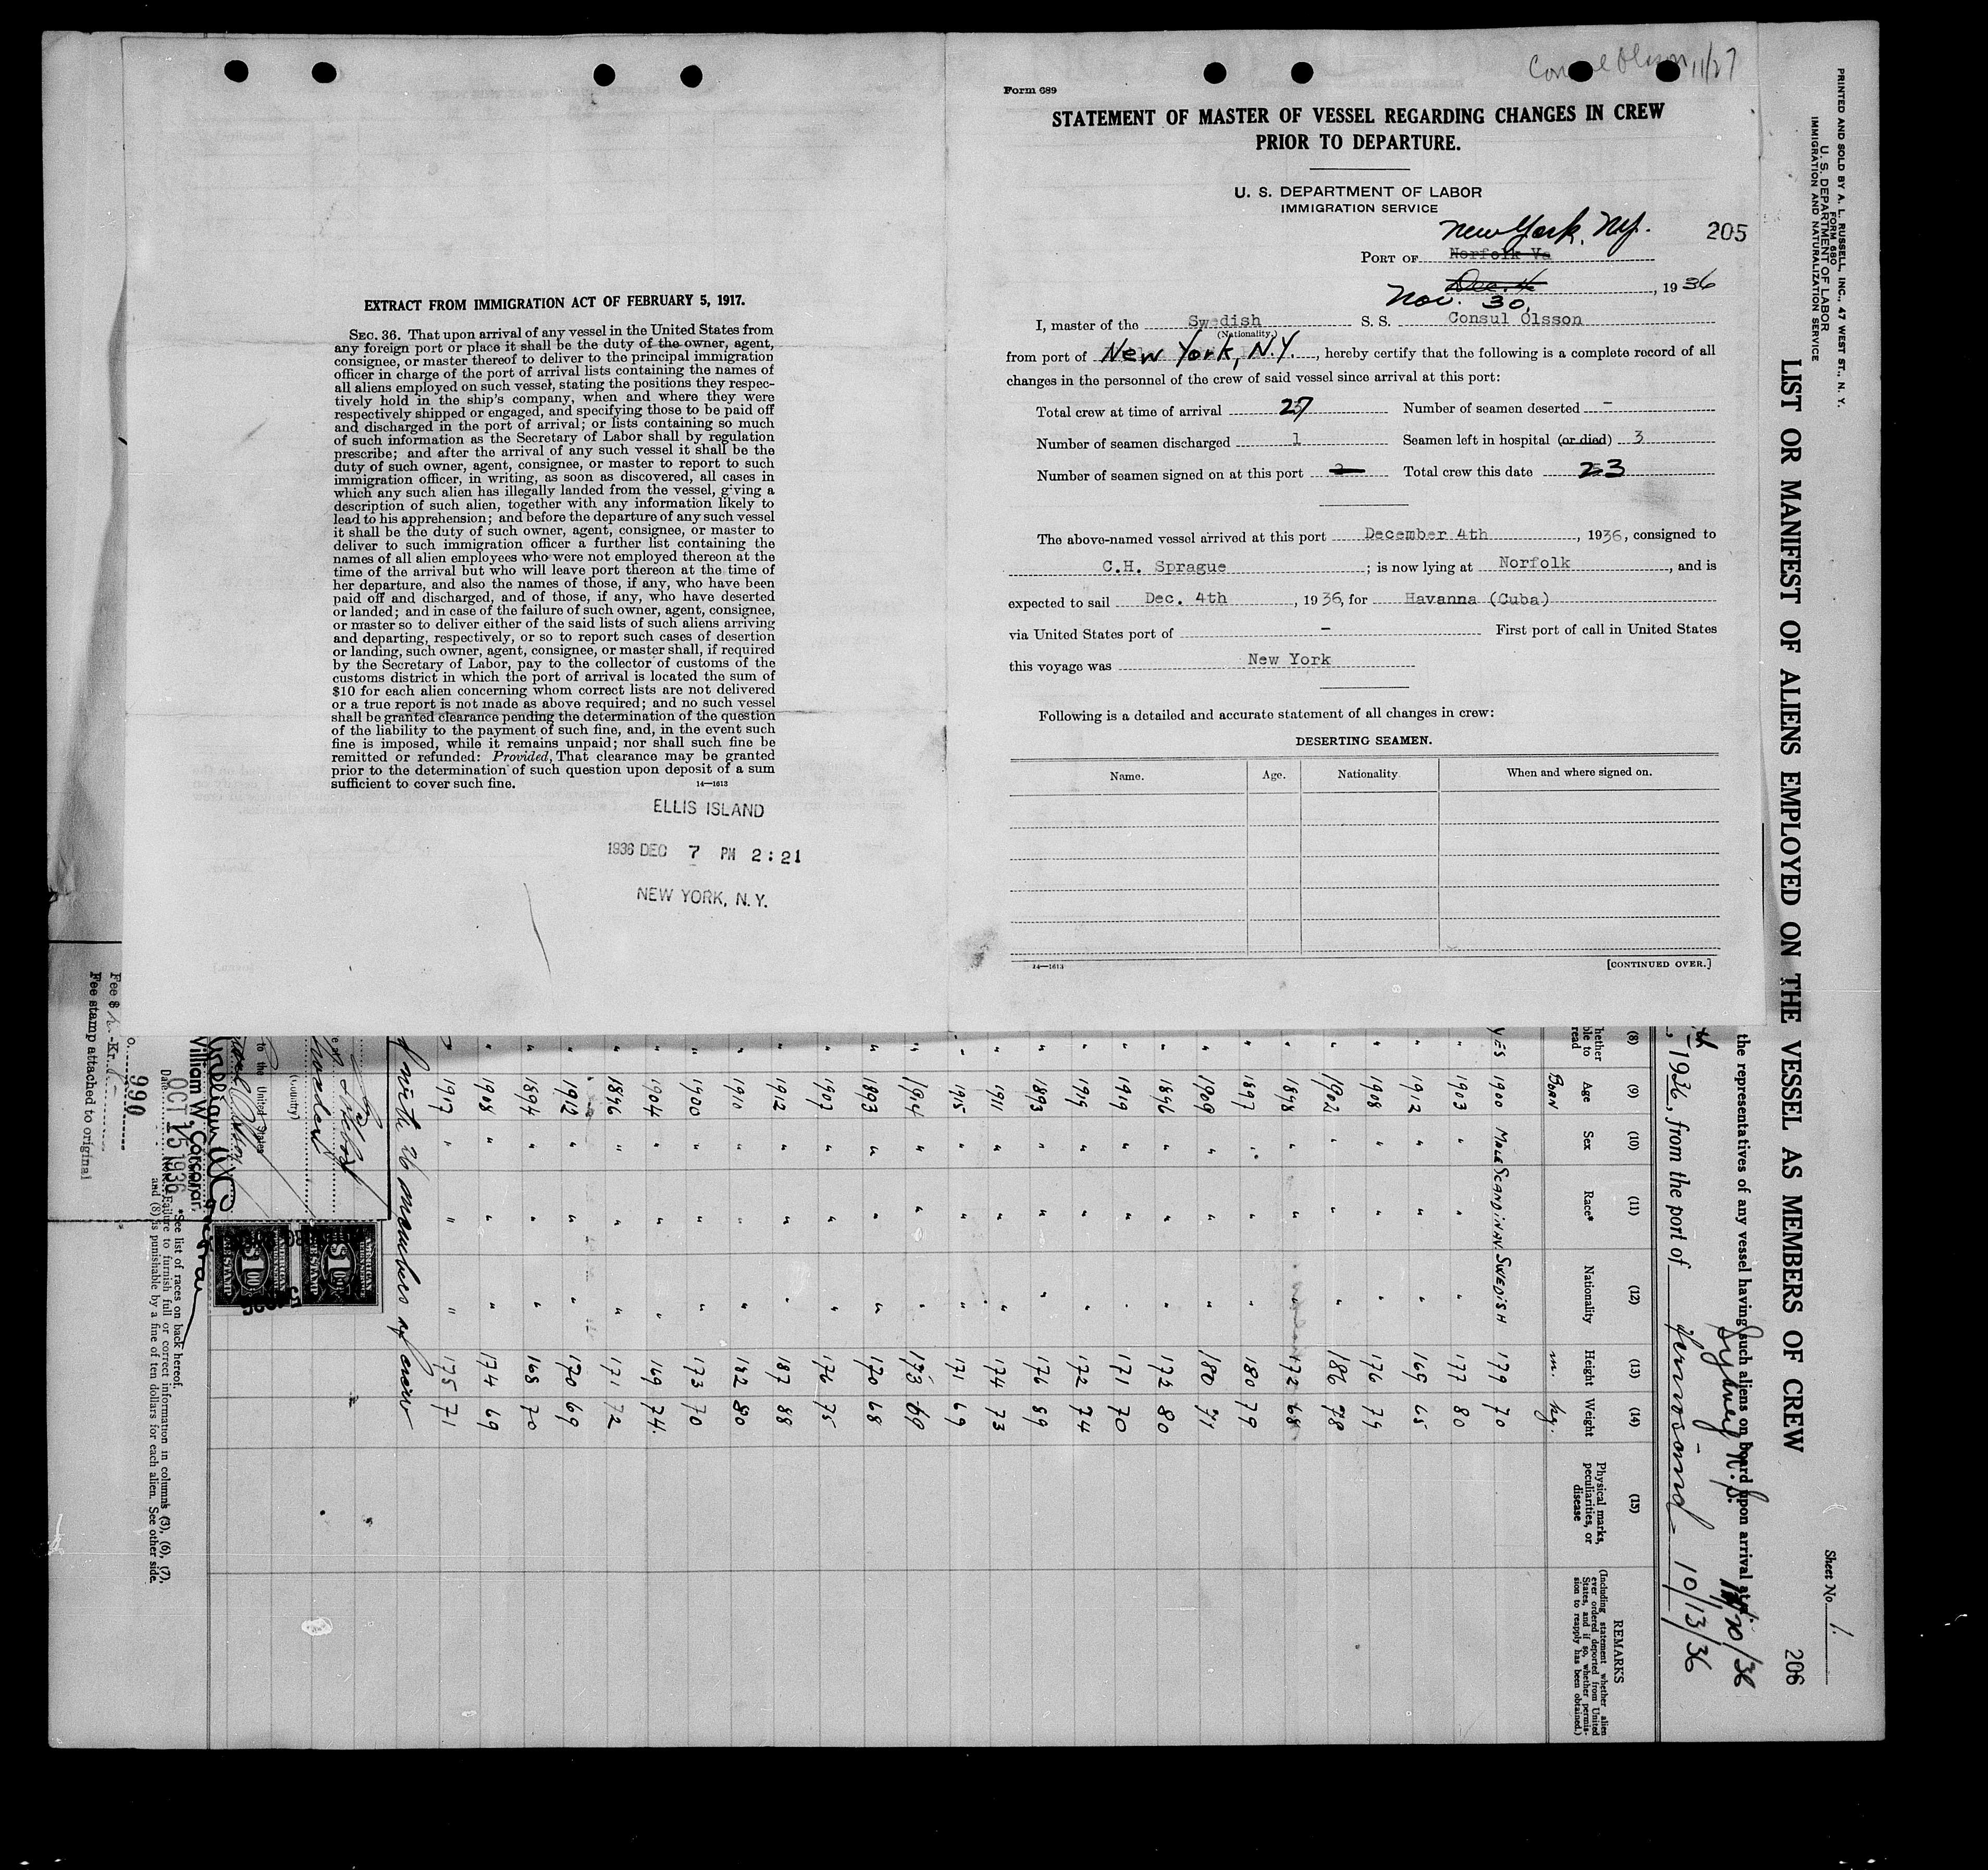 Form 689
STATEMENT OF MASTER OF VESSEL REGARDING CHANGES IN CREW
PRIOR TO DEPARTURE.
U. S. DEPARTMENT OF LABOR
IMMIGRATION SERVICE
New York, N.Y.
205
PORT OF Norfolk Va
Dec. 4, 1936
Nov. 30,
I, master of the Swedish S. S. Consul Olsson
(Nationality.)
from port of New York, N.Y., hereby certify that the following is a complete record of all
changes in the personnel of the crew of said vessel since arrival at this port:
Total crew at time of arrival 27 Number of seamen deserted -
Number of seamen discharged 1 Seamen left in hospital (or died) 3
Number of seamen signed on at this port Total crew this date 23
The above-named vessel arrived at this port December 4th, 1936, consigned to
C.H. Sprague; is now lying at Norfolk, and is
expected to sail Dec. 4th, 1936, for Havanna (Cuba)
via United States port of - First port of call in United States
this voyage was New York
Following is a detailed and accurate statement of all changes in crew:
DESERTING SEAMEN.
Name. Age. Nationality. When and where signed on.
14—1613
[CONTINUED OVER.]
EXTRACT FROM IMMIGRATION ACT OF FEBRUARY 5, 1917.
SEC. 36. That upon arrival of any vessel in the United States from
any foreign port or place it shall be the duty of the owner, agent,
consignee, or master thereof to deliver to the principal immigration
officer in charge of the port of arrival lists containing the names of
all aliens employed on such vessel, stating the positions they respec-
tively hold in the ship's company, when and where they were
respectively shipped or engaged, and specifying those to be paid off
and discharged in the port of arrival; or lists containing so much
of such information as the Secretary of Labor shall by regulation
prescribe; and after the arrival of any such vessel it shall be the
duty of such owner, agent, consignee, or master to report to such
immigration officer, in writing, as soon as discovered, all cases in
which any such alien has illegally landed from the vessel, giving a
description of such alien, together with any information likely to
lead to his apprehension; and before the departure of any such vessel
it shall be the duty of such owner, agent, consignee, or master to
deliver to such immigration officer a further list containing the
names of all alien employees who were not employed thereon at the
time of the arrival but who will leave port thereon at the time of
her departure, and also the names of those, if any, who have been
paid off and discharged, and of those, if any, who have deserted
or landed; and in case of the failure of such owner, agent, consignee,
or master so to deliver either of the said lists of such aliens arriving
and departing, respectively, or so to report such cases of desertion
or landing, such owner, agent, consignee, or master shall, if required
by the Secretary of Labor, pay to the collector of customs of the
customs district in which the port of arrival is located the sum of
$10 for each alien concerning whom correct lists are not delivered
or a true report is not made as above required; and no such vessel
shall be granted clearance pending the determination of the question
of the liability to the payment of such fine, and, in the event such
fine is imposed, while it remains unpaid; nor shall such fine be
remitted or refunded: Provided, That clearance may be granted
prior to the determination of such question upon deposit of a sum
sufficient to cover such fine.
14—1613
ELLIS ISLAND
1936 DEC 7 PM 2:21
NEW YORK, N.Y.
PRINTED AND SOLD BY A. L. RUSSELL, INC., 47 WEST ST., N. Y.
FORM 680
U. S. DEPARTMENT OF LABOR
IMMIGRATION AND NATURALIZATION SERVICE
Sheet No. 1.
LIST OR MANIFEST OF ALIENS EMPLOYED ON THE VESSEL AS MEMBERS OF CREW
206
the representatives of any vessel having such aliens on board upon arrival at
Sydney N.S. 11/20/36
, 1936, from the port of Hernösand 10/13/36
(8) (9) (10) (11) (12) (13) (14) (15) REMARKS
Age Sex Race* Nationality Height Weight Physical marks, peculiarities, or disease
(Including statement whether alien ever ordered deported from United States, and if so, whether permission to reapply has been obtained.)
BORN m. kg.
YES 1900 MALE SCANDINAV. SWEDISH 179 70
" 1903 " " " 177 80
" 1912 " " " 169 65
" 1908 " " " 176 79
" 1902 " " " 186 78
" 1898 " " 172 68
" 1897 " " " 180 79
" 1909 " " " 180 71
" 1896 " " " 172 80
" 1919 " " " 171 70
" 1919 " " " 172 74
" 1893 " " " 176 89
" 1911 " " " 174 73
" 1915 " " " 171 69
" 1914 " " " 173 69
" 1893 " " " 170 68
" 1907 " " " 176 75
" 1912 " " " 187 88
" 1910 " " " 182 80
" 1900 " " " 173 70
" 1904 " " " 169 74
" 1896 " " " 171 72
" 1912 " " " 170 69
" 1894 " " " 168 70
" 1908 " " " 174 69
" 1917 " " " 175 71
with 26 members of crew
(Country)
to the United States
William W. Corcoran
OCT 15 1936
990
*See list of races on back hereof.
Failure to furnish full or correct information in columns (3), (6), (7),
and (8) is punishable by a fine of ten dollars for each alien. See other side.
Fee stamp attached to original